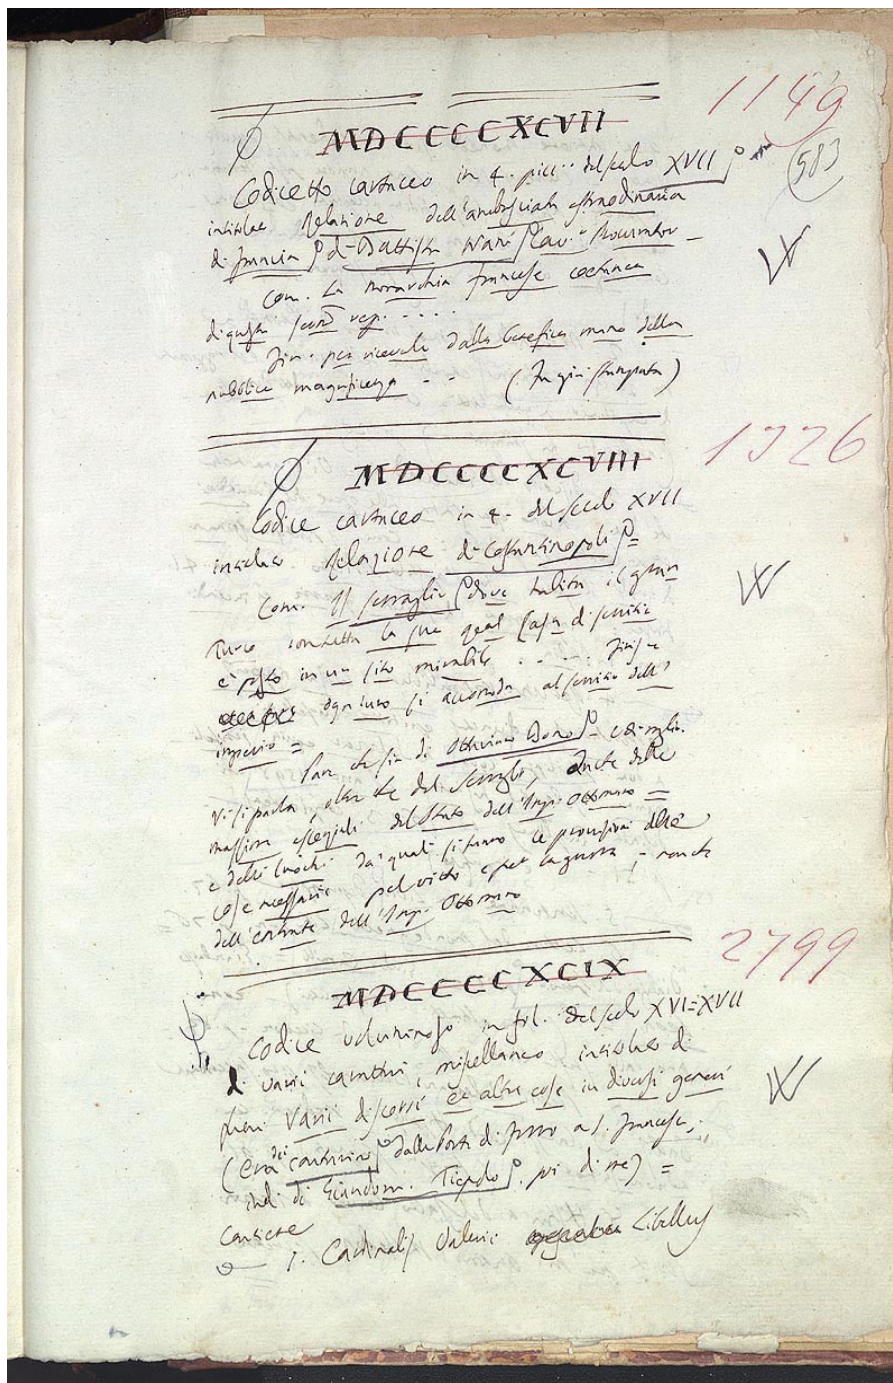 1149
583
MDCCCCXCVII
Codicetto cartaceo in 4. picc. del secolo XVII
intitolato Relazione dell'ambasciata estraordinaria
di Francia di Battista Nani Cav. Procurator
Com. La monarchia francese
di questi
Fin. per riceverle dalla benefica mano della
pubblica magnificenza - - (In gran stampata)
1326
MDCCCCXCVIII
Codice cartaceo in 4. del secolo XVII
intitolato Relazione di Costantinopoli =
Com. Il serraglio dove habita il gran
Turco con tutta la sua real casa di servitio
è posto in un sito mirabile . . . . . Finisce
ogn'uno si accomoda al servitio dell'
imperio =
Pare che sia di Ottaviano Bono
Vi si parla, oltre che del Serraglio, anche delle
massime essenziali del Stato dell'Imp. Ottomano =
e delli luochi da quali si fanno le provisioni delle
cose necessarie pel vitto e per la guerra, - non che
dell'entrate dell'Imp. Ottomano
2799
MDCCCCXCIX
Codice voluminoso in fol. del secolo XVI=XVII
di varii caratteri, miscellaneo intitolato di
fuori Varii discorsi et altre cose in diversi generi
(era dei dalla Porta di Ferro a S. Francesco,
indi di Giandom. Tiepolo. poi di me) =
Contiene
1. Cardinalis Valerii Libellus